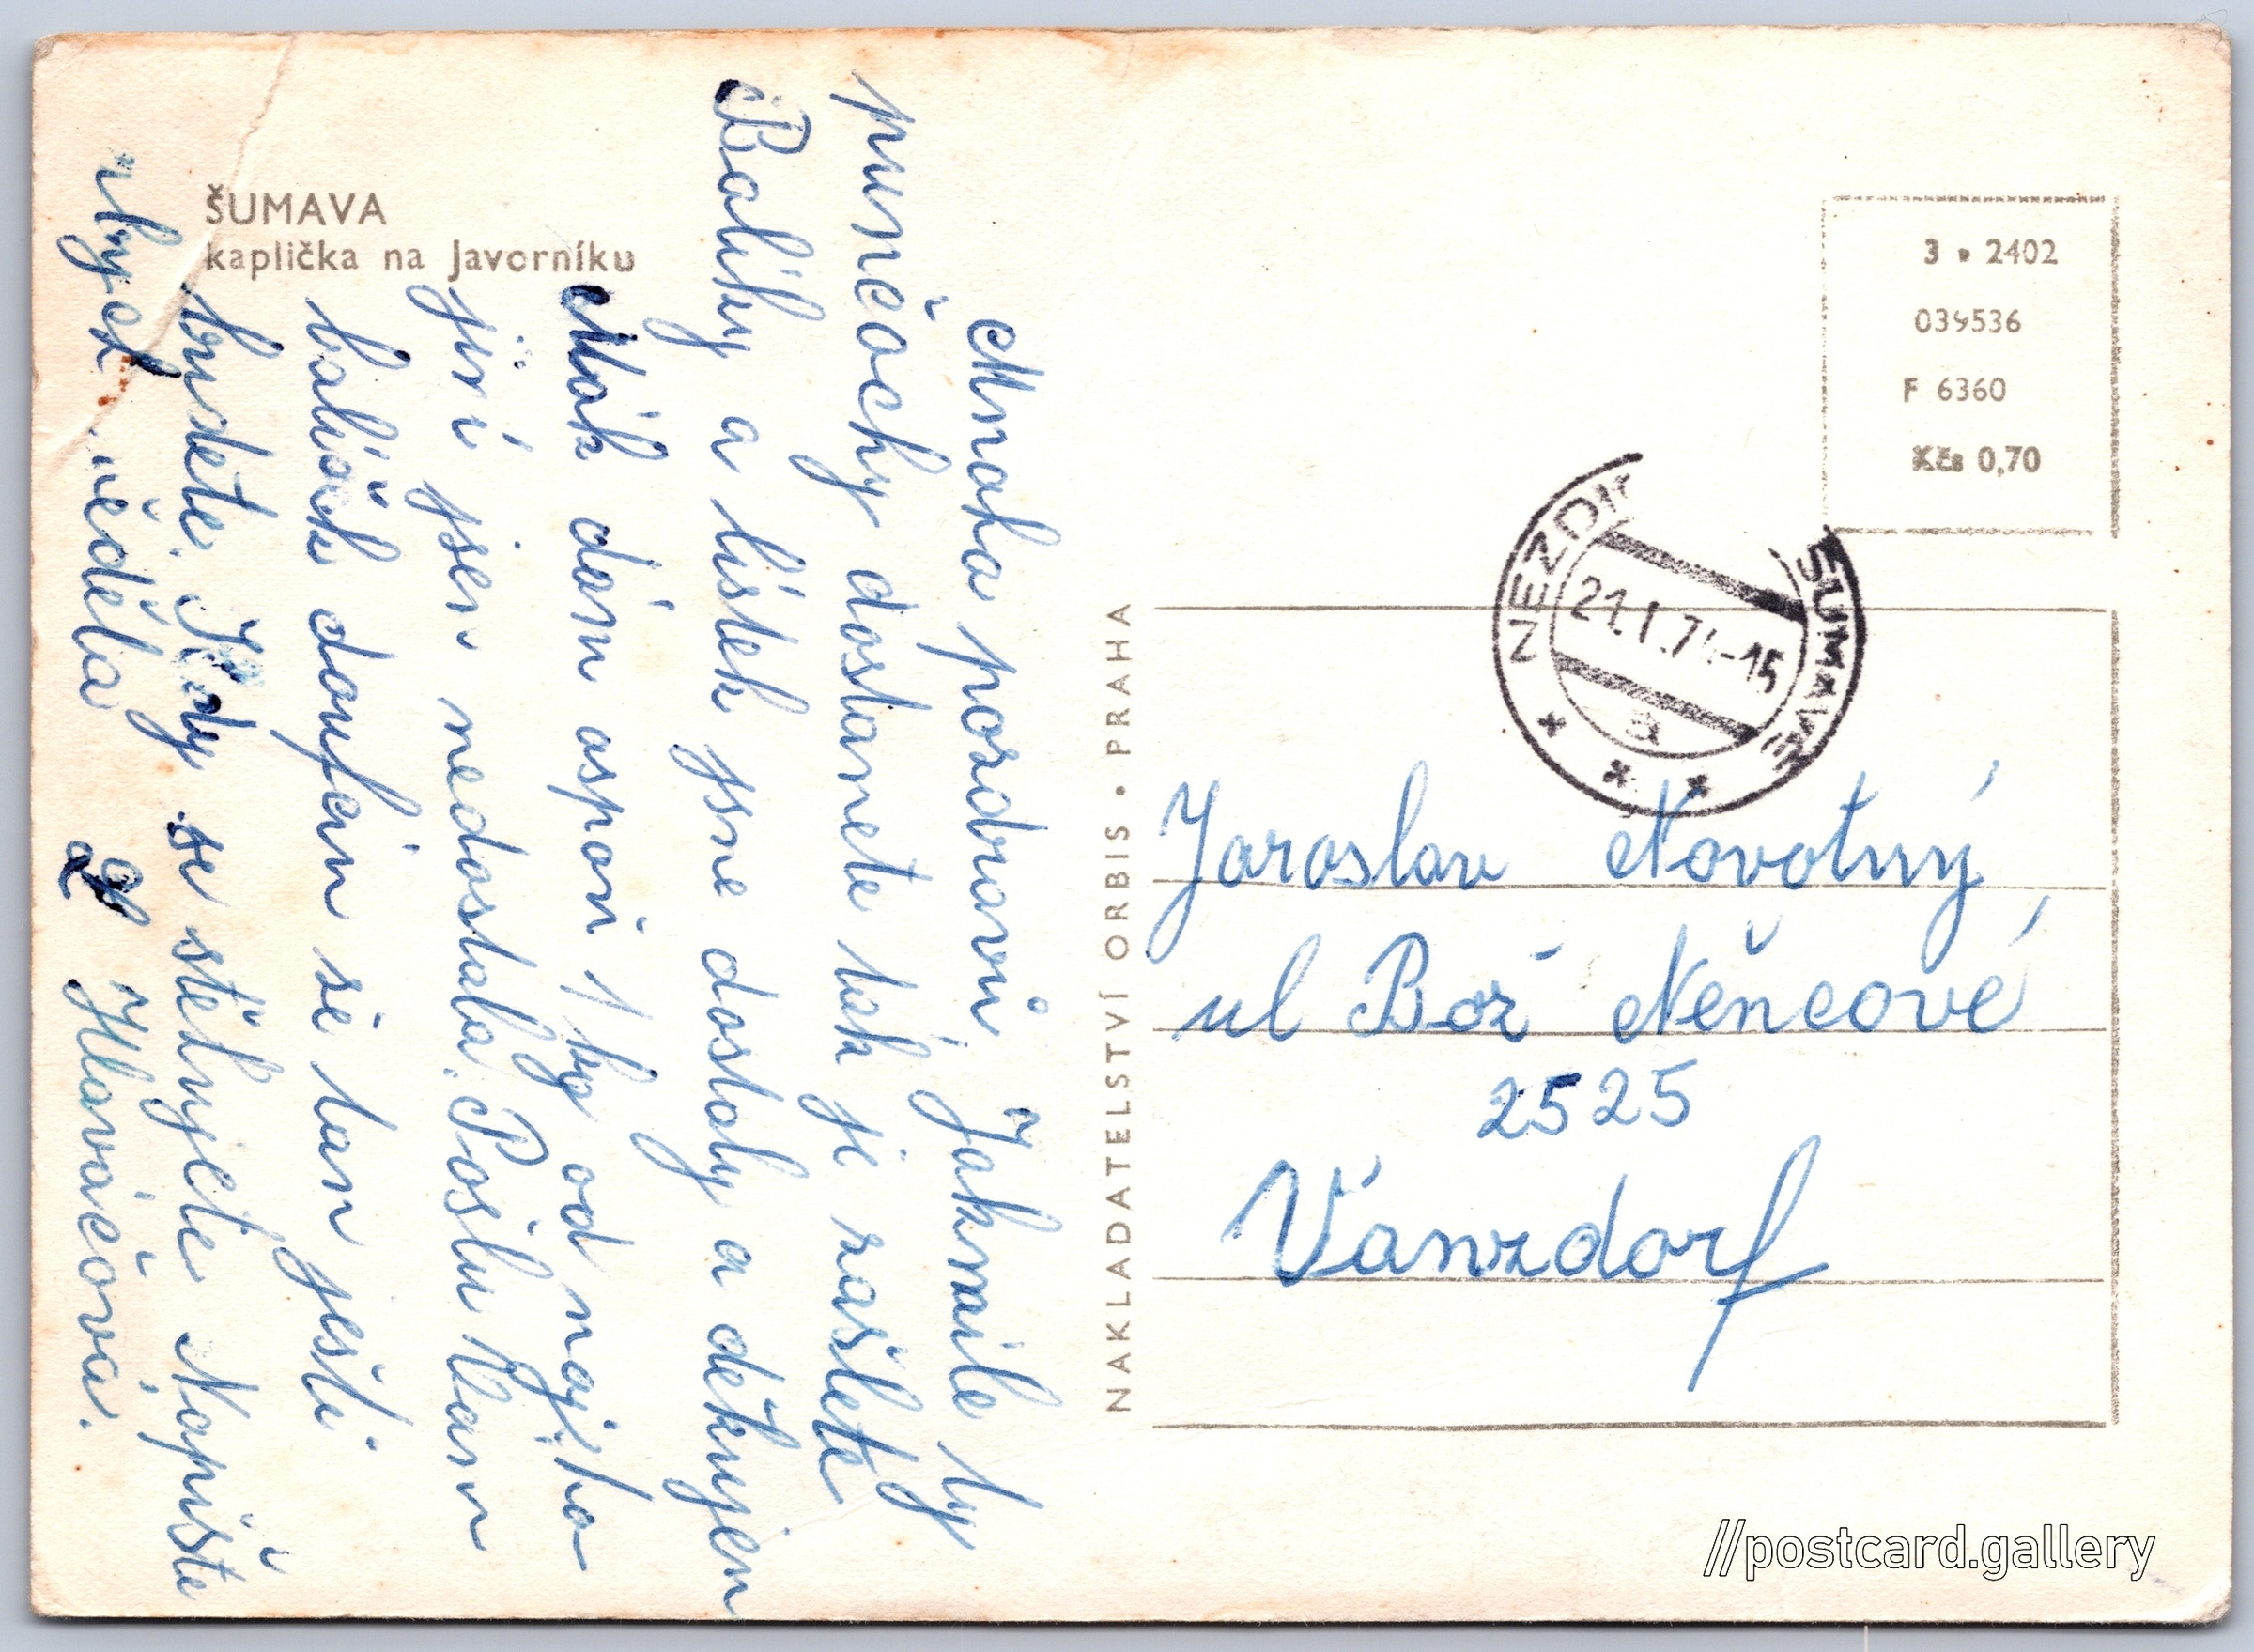 ŠUMAVA
kaplička na Javorníku
Mnoho pozdravů, Jakmile ty
punčochy dostanete tak je zašlete
Balíky a lístek jsme dostaly a děkujem
Mák dám aspoň 1 kg od najího
jiní jsem nedostala. Pošlu Vam
balíček doufem se tam jesti
budete. Kdy se stěhujete Napište
abych věděla Hlaváčová.
NAKLADATELSTVÍ ORBIS • PRAHA
3 • 2402
039536
F 6360
Kčs 0,70
ŠUMAVĚ
21.I.7 -15
a
Jaroslav Novotný
ul Bož Něncové
2525
Vanzdorf
//postcard.gallery